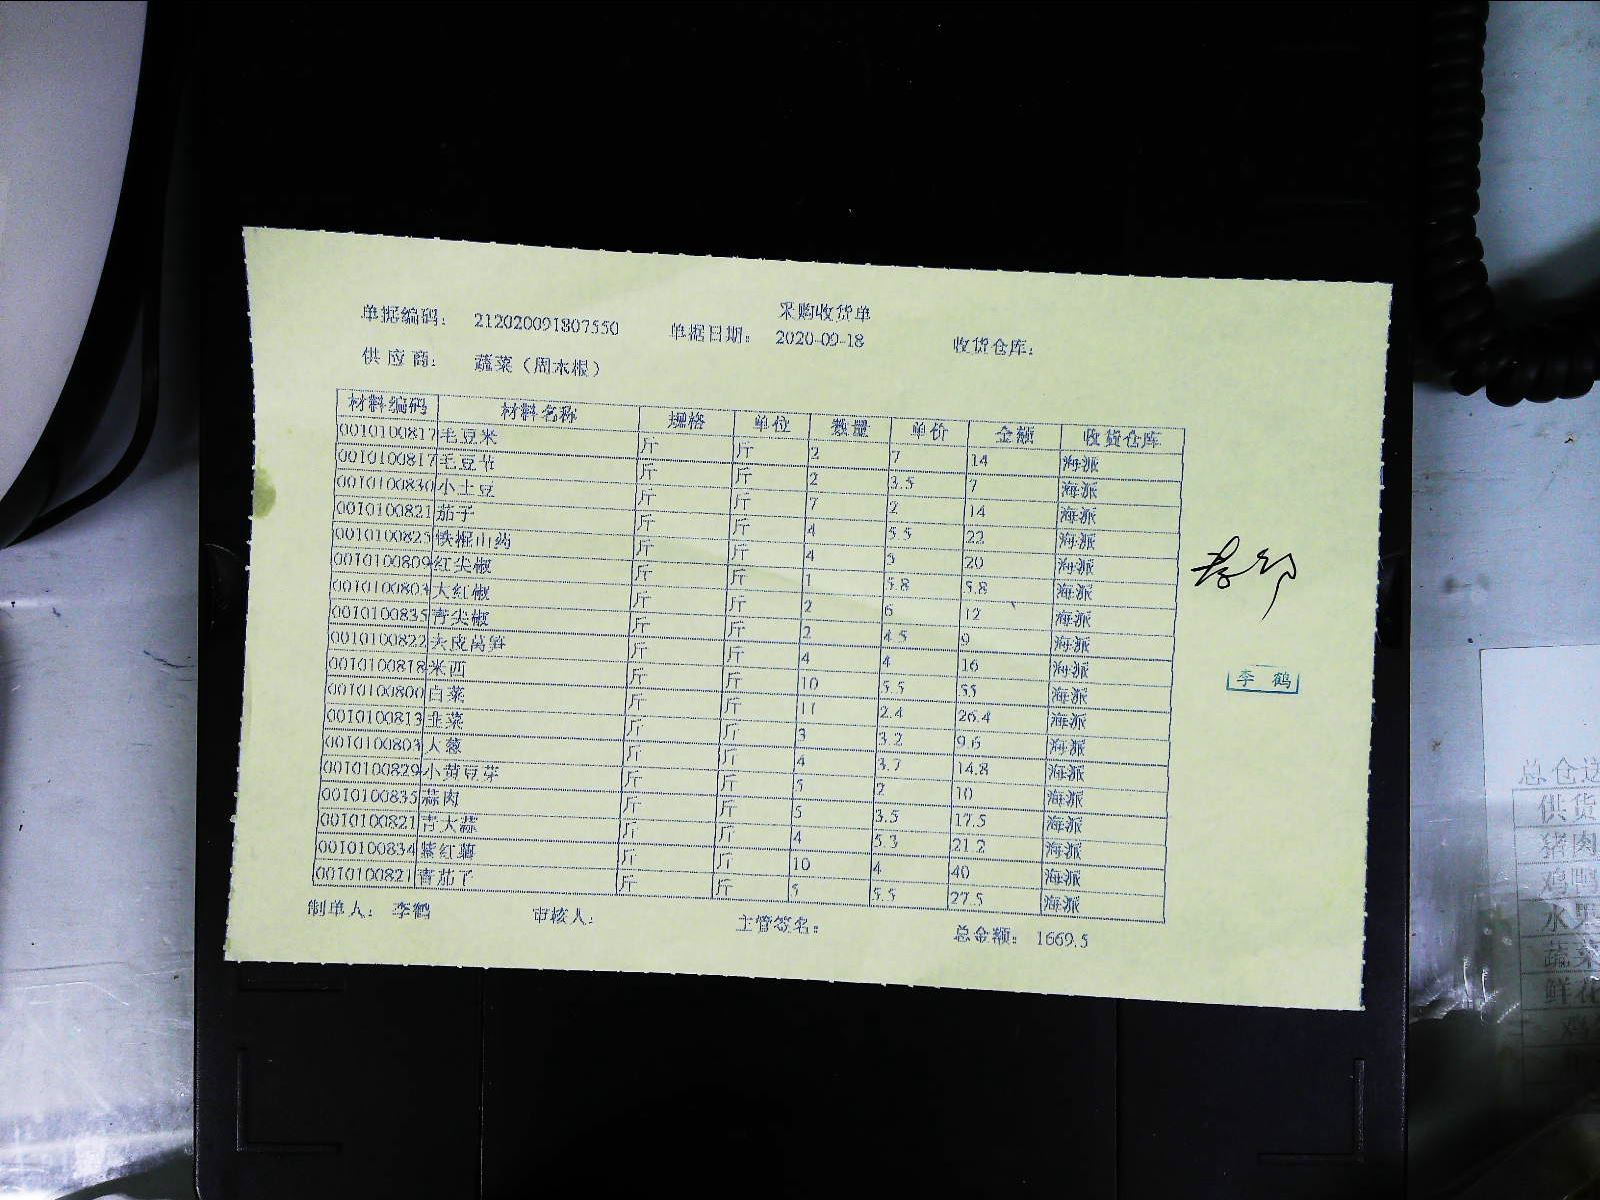 采购收货单
单据编码： 212020091807550 单据日期： 2020-09-18 收货仓库：
供应商： 蔬菜（周木根）
材料编码 材料名称 规格 单位 数量 单价 金额 收货仓库
0010100817 毛豆米 斤 斤 2 7 14 海派
0010100817 毛豆节 斤 斤 2 3.5 7 海派
0010100830 小土豆 斤 斤 7 2 14 海派
0010100821 茄子 斤 斤 4 5.5 22 海派
0010100825 铁棍山药 斤 斤 4 5 20 海派
0010100809 红尖椒 斤 斤 1 5.8 5.8 海派
0010100803 大红椒 斤 斤 2 6 12 海派
0010100835 青尖椒 斤 斤 2 4.5 9 海派
0010100822 夹皮莴笋 斤 斤 4 4 16 海派
0010100818 米西 斤 斤 10 5.5 55 海派
0010100800 白菜 斤 斤 11 2.4 26.4 海派
0010100813 韭菜 斤 斤 3 3.2 9.6 海派
0010100803 大葱 斤 斤 4 3.7 14.8 海派
0010100829 小黄豆芽 斤 斤 5 2 10 海派
0010100835 蒜肉 斤 斤 5 3.5 17.5 海派
0010100821 青大蒜 斤 斤 4 5.3 21.2 海派
0010100834 紫红薯 斤 斤 10 4 40 海派
0010100821 青茄子 斤 斤 5 5.5 27.5 海派
制单人： 李鹤 审核人： 主管签名： 总金额： 1669.5
李鹤
总仓送
供货
猪肉
水果
蔬菜
鲜花